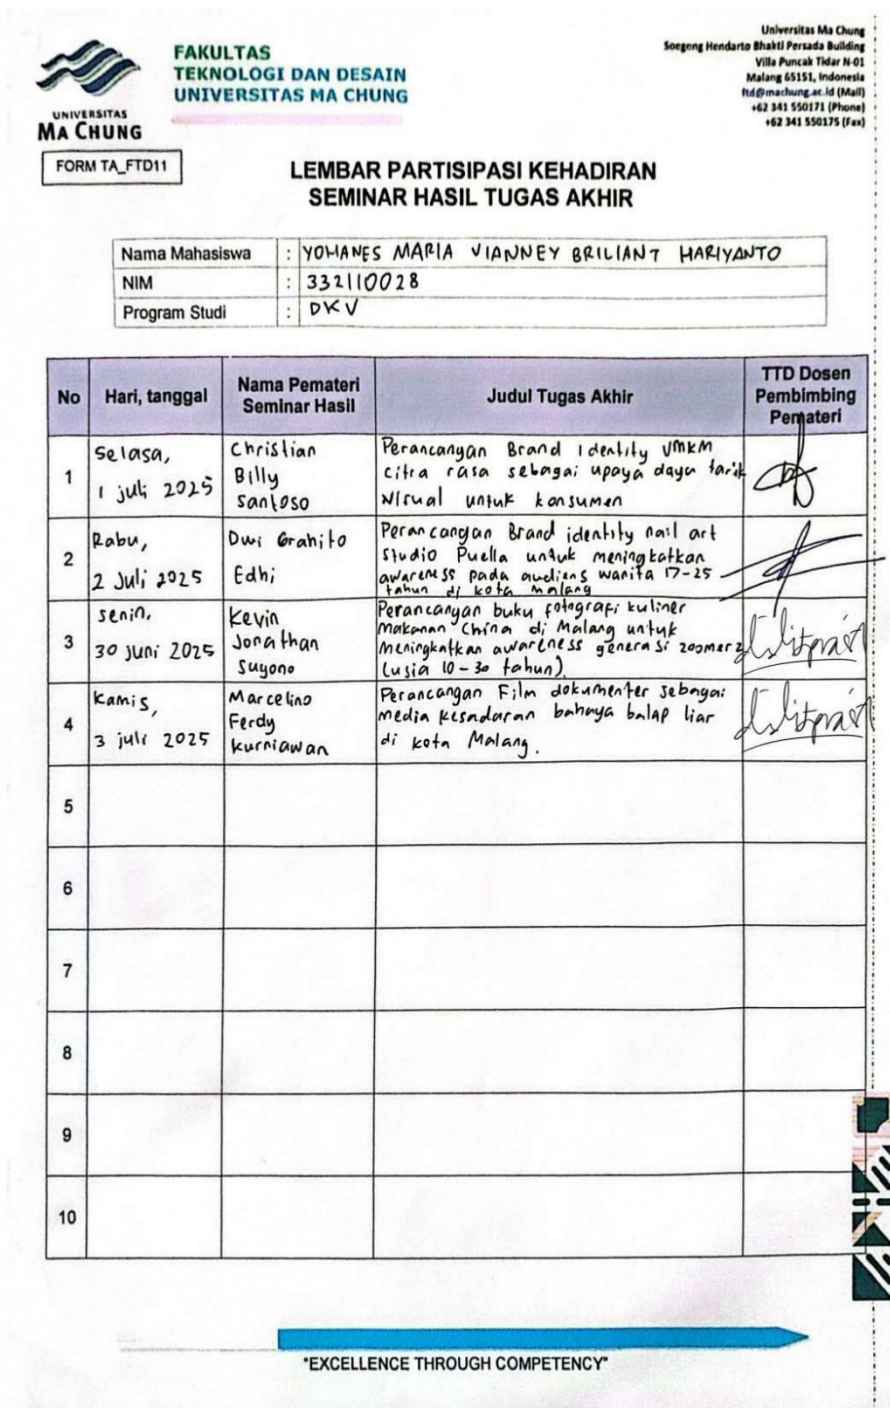 UNIVERSITAS
MA CHUNG
FAKULTAS
TEKNOLOGI DAN DESAIN
UNIVERSITAS MA CHUNG
Universitas Ma Chung
Soegeng Hendarto Bhakti Persada Building
Villa Puncak Tidar N-01
Malang 65151, Indonesia
ftd@machung.ac.id (Mail)
+62 341 550171 (Phone)
+62 341 550175 (Fax)
FORM TA_FTD11
LEMBAR PARTISIPASI KEHADIRAN
SEMINAR HASIL TUGAS AKHIR
Nama Mahasiswa : YOHANES MARIA VIANNEY BRILIANT HARIYANTO
NIM : 332110028
Program Studi : DKV
No
Hari, tanggal
Nama Pemateri
Seminar Hasil
Judul Tugas Akhir
TTD Dosen
Pembimbing
Pemateri
1
Selasa,
1 juli 2025
Christian
Billy
Santoso
Perancangan Brand Identity UMKM
citra rasa sebagai upaya daya tarik
Visual untuk konsumen
2
Rabu,
2 Juli 2025
Dwi Grahito
Edhi
Perancangan Brand identity nail art
Studio Puella untuk meningkatkan
awareness pada audiens wanita 17-25
tahun di kota malang
3
senin,
30 juni 2025
Kevin
Jonathan
Suyono
Perancangan buku fotografi kuliner
Makanan China di Malang untuk
Meningkatkan awareness generasi zoomerz
(usia 10-30 tahun).
4
Kamis,
3 juli 2025
Marcelino
Ferdy
Kurniawan
Perancangan Film dokumenter sebagai
media kesadaran bahaya balap liar
di kota Malang.
5
6
7
8
9
10
"EXCELLENCE THROUGH COMPETENCY"